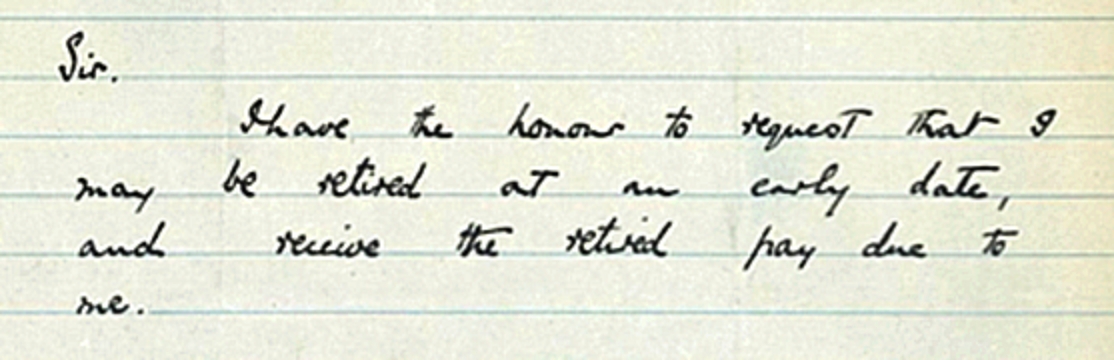 Sir.
I have the honour to request that I
may be retired at an early date,
and receive the retired pay due to
me.